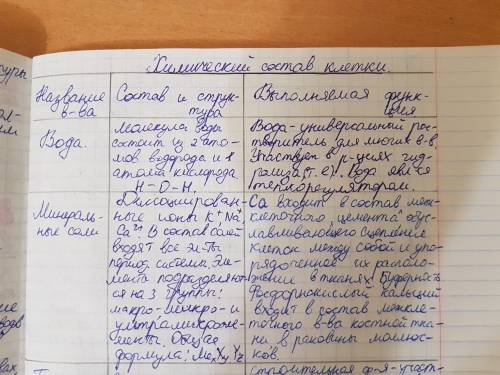 Химический состав клетки.
Название в-ва
Состав и струк-
тура
Выполняемая функ-
ция
Вода.
Молекула воды
состоит из 2 ато-
мов водорода и 1
атома кислорода
H-O-H.
Вода-универсальный рас-
творитель для многих в-в.
Участвует в р-циях гид-
ролиза(т.е). Вода явл-ся
терморегулятором.
Минераль-
ные соли
Диссоциирован-
ные ионы K⁺Na⁺
Ca²⁺ В состав солей
входят все эл-ты
период. системы. Эле-
мента подразделяют-
ся на 3 группы:
макро-, микро- и
ультрамикроэле-
менты. Общая
формула: MexXyYz
Ca входит в состав меж-
клеточного "цемента" обус-
лавливающего сцепление
клеток между собой и упо-
рядоченное их располо-
жение в тканях. Буферность
Фосфорнокислый кальций
входит в состав межкле-
точного в-ва костной тка-
ни в раковины моллюс-
ков.
строительная ф-я-участ-